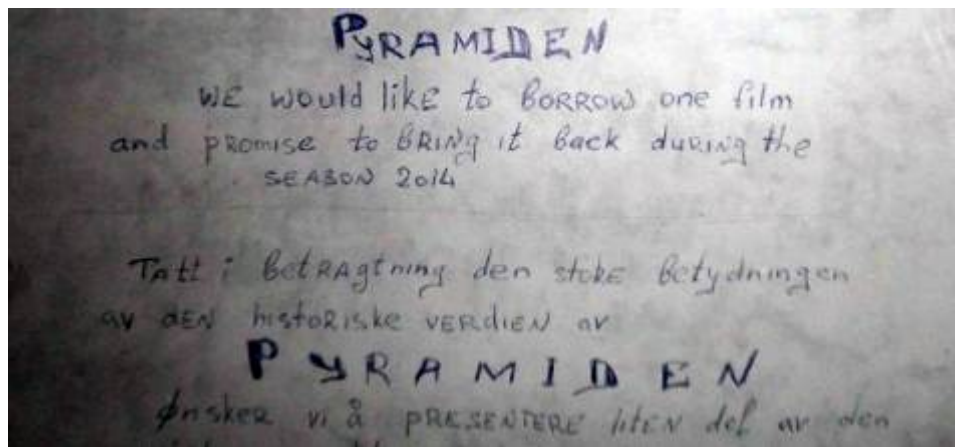 PYRAMIDEN
WE would likE to BORROW one film
and pRomise to BRINg it back duRINg the
SEASON 2014
Tatt i BetRAgtning den stoRE Betydningen
av dEN histoRiske VERdiEN av
PYRAMIDEN
Ønsker vi å PRESENTERE liten del av den